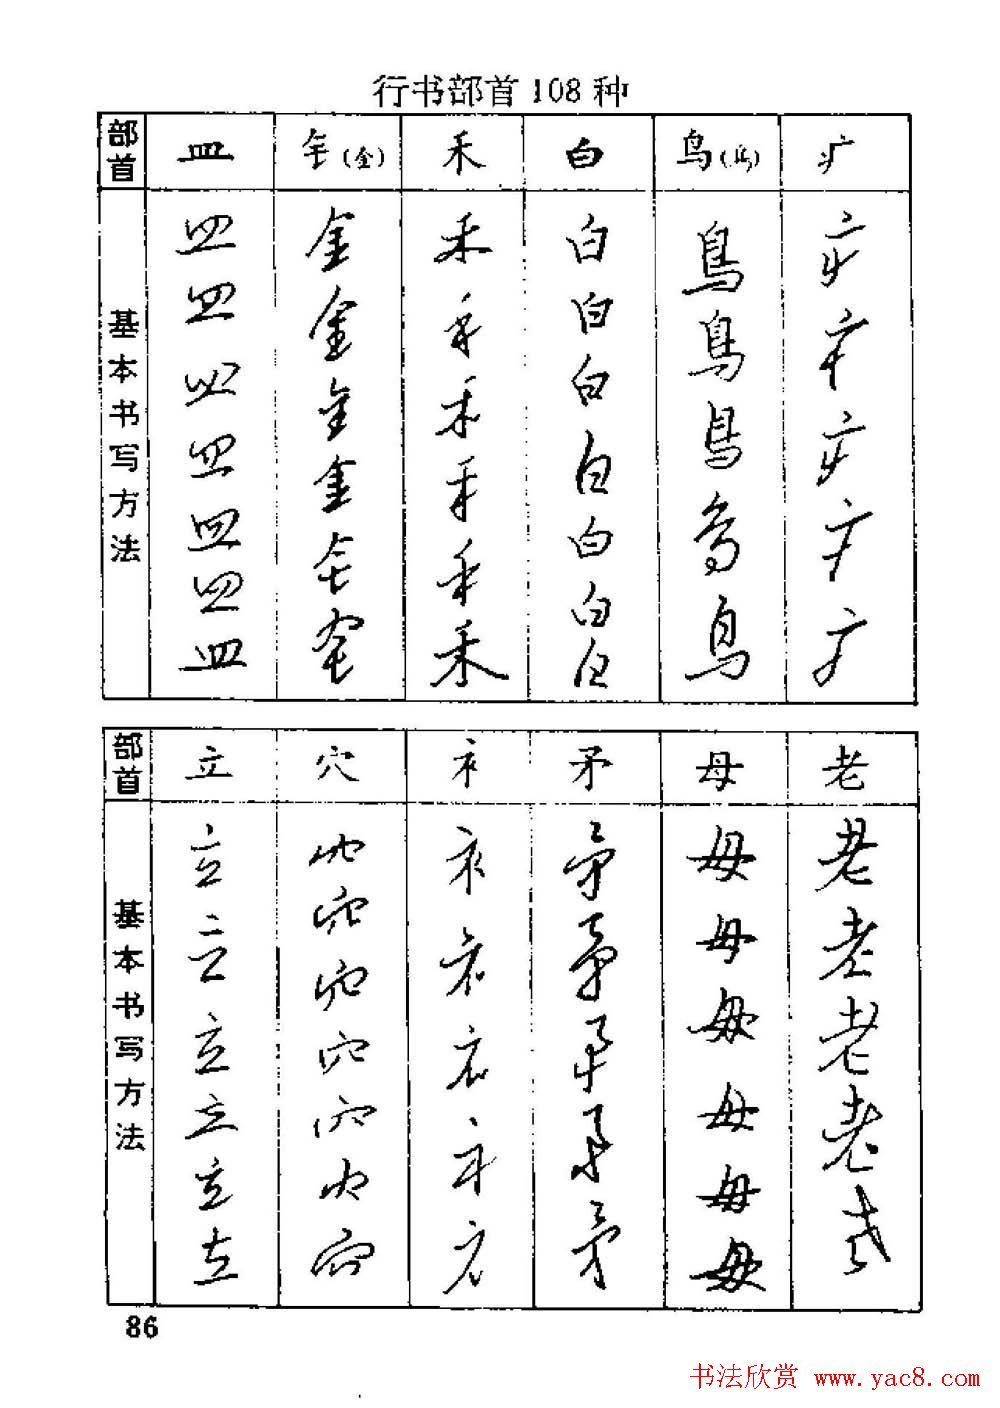 行书部首108种
部首 皿 钅(金) 禾 白 鸟(鸟) 疒
基本书写方法
皿 金 禾 白 鳥 疒
皿 金 禾 白 鳥 疒
皿 金 禾 白 鳥 疒
皿 金 禾 白 鸟 疒
皿 金 禾 白 鸟 疒
皿 金 禾 白
皿 白
部首 立 穴 衤 矛 母 老
基本书写方法
立 穴 衣 矛 母 老
立 穴 衣 矛 母 老
立 穴 衣 矛 母 老
立 穴 衤 矛 母 老
立 穴 衣 矛 母 老
立 穴 母
穴
86
书法欣赏 www.yac8.com